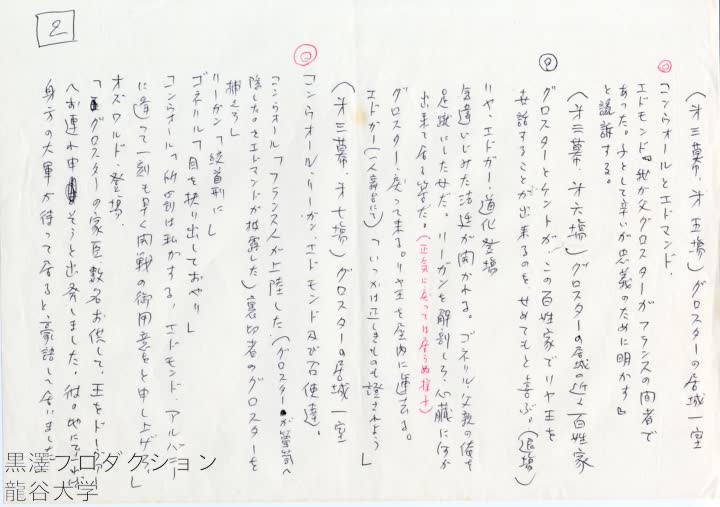 2
(第三幕、第五場) グロスターの居城一室
コンウオールとエドマンド、
エドモンド「我が父グロスターがフランスの間者で
あった。子として辛いが忠義のために明かす」
と讒訴する。
(第三幕、第六場) グロスターの居城の近く百姓家
グロスターとケントが、この百姓家でリヤ王を
世話することが出来るのを せめてもと喜ぶ。(退場)
リヤ、エドガー、道化登場
気違いじみた法廷が開かれる。ゴネリル、父親の俺を
足蹴にした女だ。リーガンを解剖しろ、心臓に何か
出来て居る筈だ。(正気に戻っては居らぬ様子)
グロスター、戻って来る。リヤ王を屋内に運び去る。
エドガー(一人舞台にて)「いつかは正しきものも證されよう」
(第三幕、第七場) グロスターの居城一室
コンウオール、リーガン、エドモンド及び召使達。
コンウオール「フランス人が上陸した(グロスターが箪笥へ
隠した。をエドマンドが披露した)裏切者のグロスターを
捕えろ」
リーガン「絞首刑に」
ゴネリル「目を抉り出しておやり」
コンウオール「所罰は私がする、エドモンド、アルバニー
に逢って一刻も早く開戦の御用意をと申し上げろ」
オズワルド、登場、
「グロスターの家臣、数名お供して、王をドーヴァー
へお連れ申そうと出発しました。彼の地にては
身方の大軍が待って居ると、豪語して居いました
黒澤プロダクション
龍谷大学